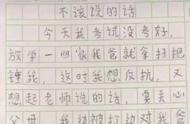 不该说的话
今天我考试没考好，
放学一回家我爸就拿扫把
锤我，这时我想反抗，又
想起老师说的话，要关心
父母，我